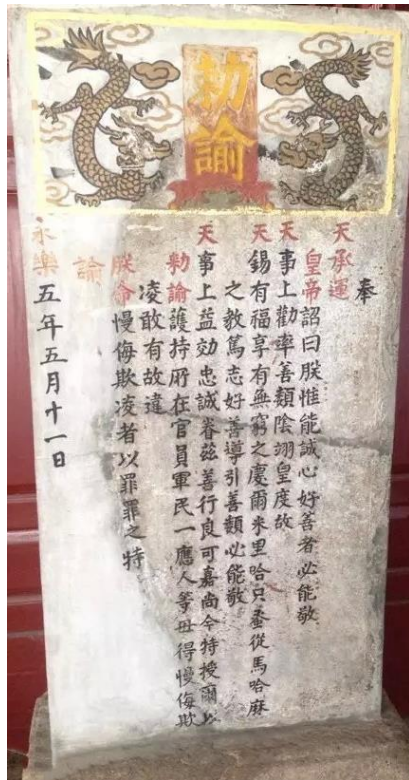 勅諭
奉
天承運
皇帝詔曰朕惟能誠心好善者必能敬
天事上勸率善類陰翊皇度故
天錫有福享有無窮之慶爾米里哈只蚤從馬哈麻
之教篤志好善導引善類必能敬
天事上益効忠誠眷兹善行良可嘉尚今特授爾以
勅諭護持所在官員軍民一應人等毋得慢侮欺
凌敢有故違
朕命慢侮欺凌者以罪罪之特
諭
永樂五年五月十一日